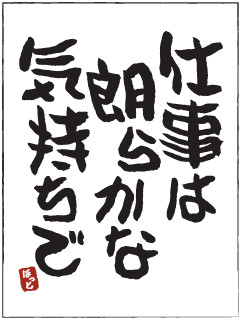 仕事は
朗らかな
気持ちで
ほっと